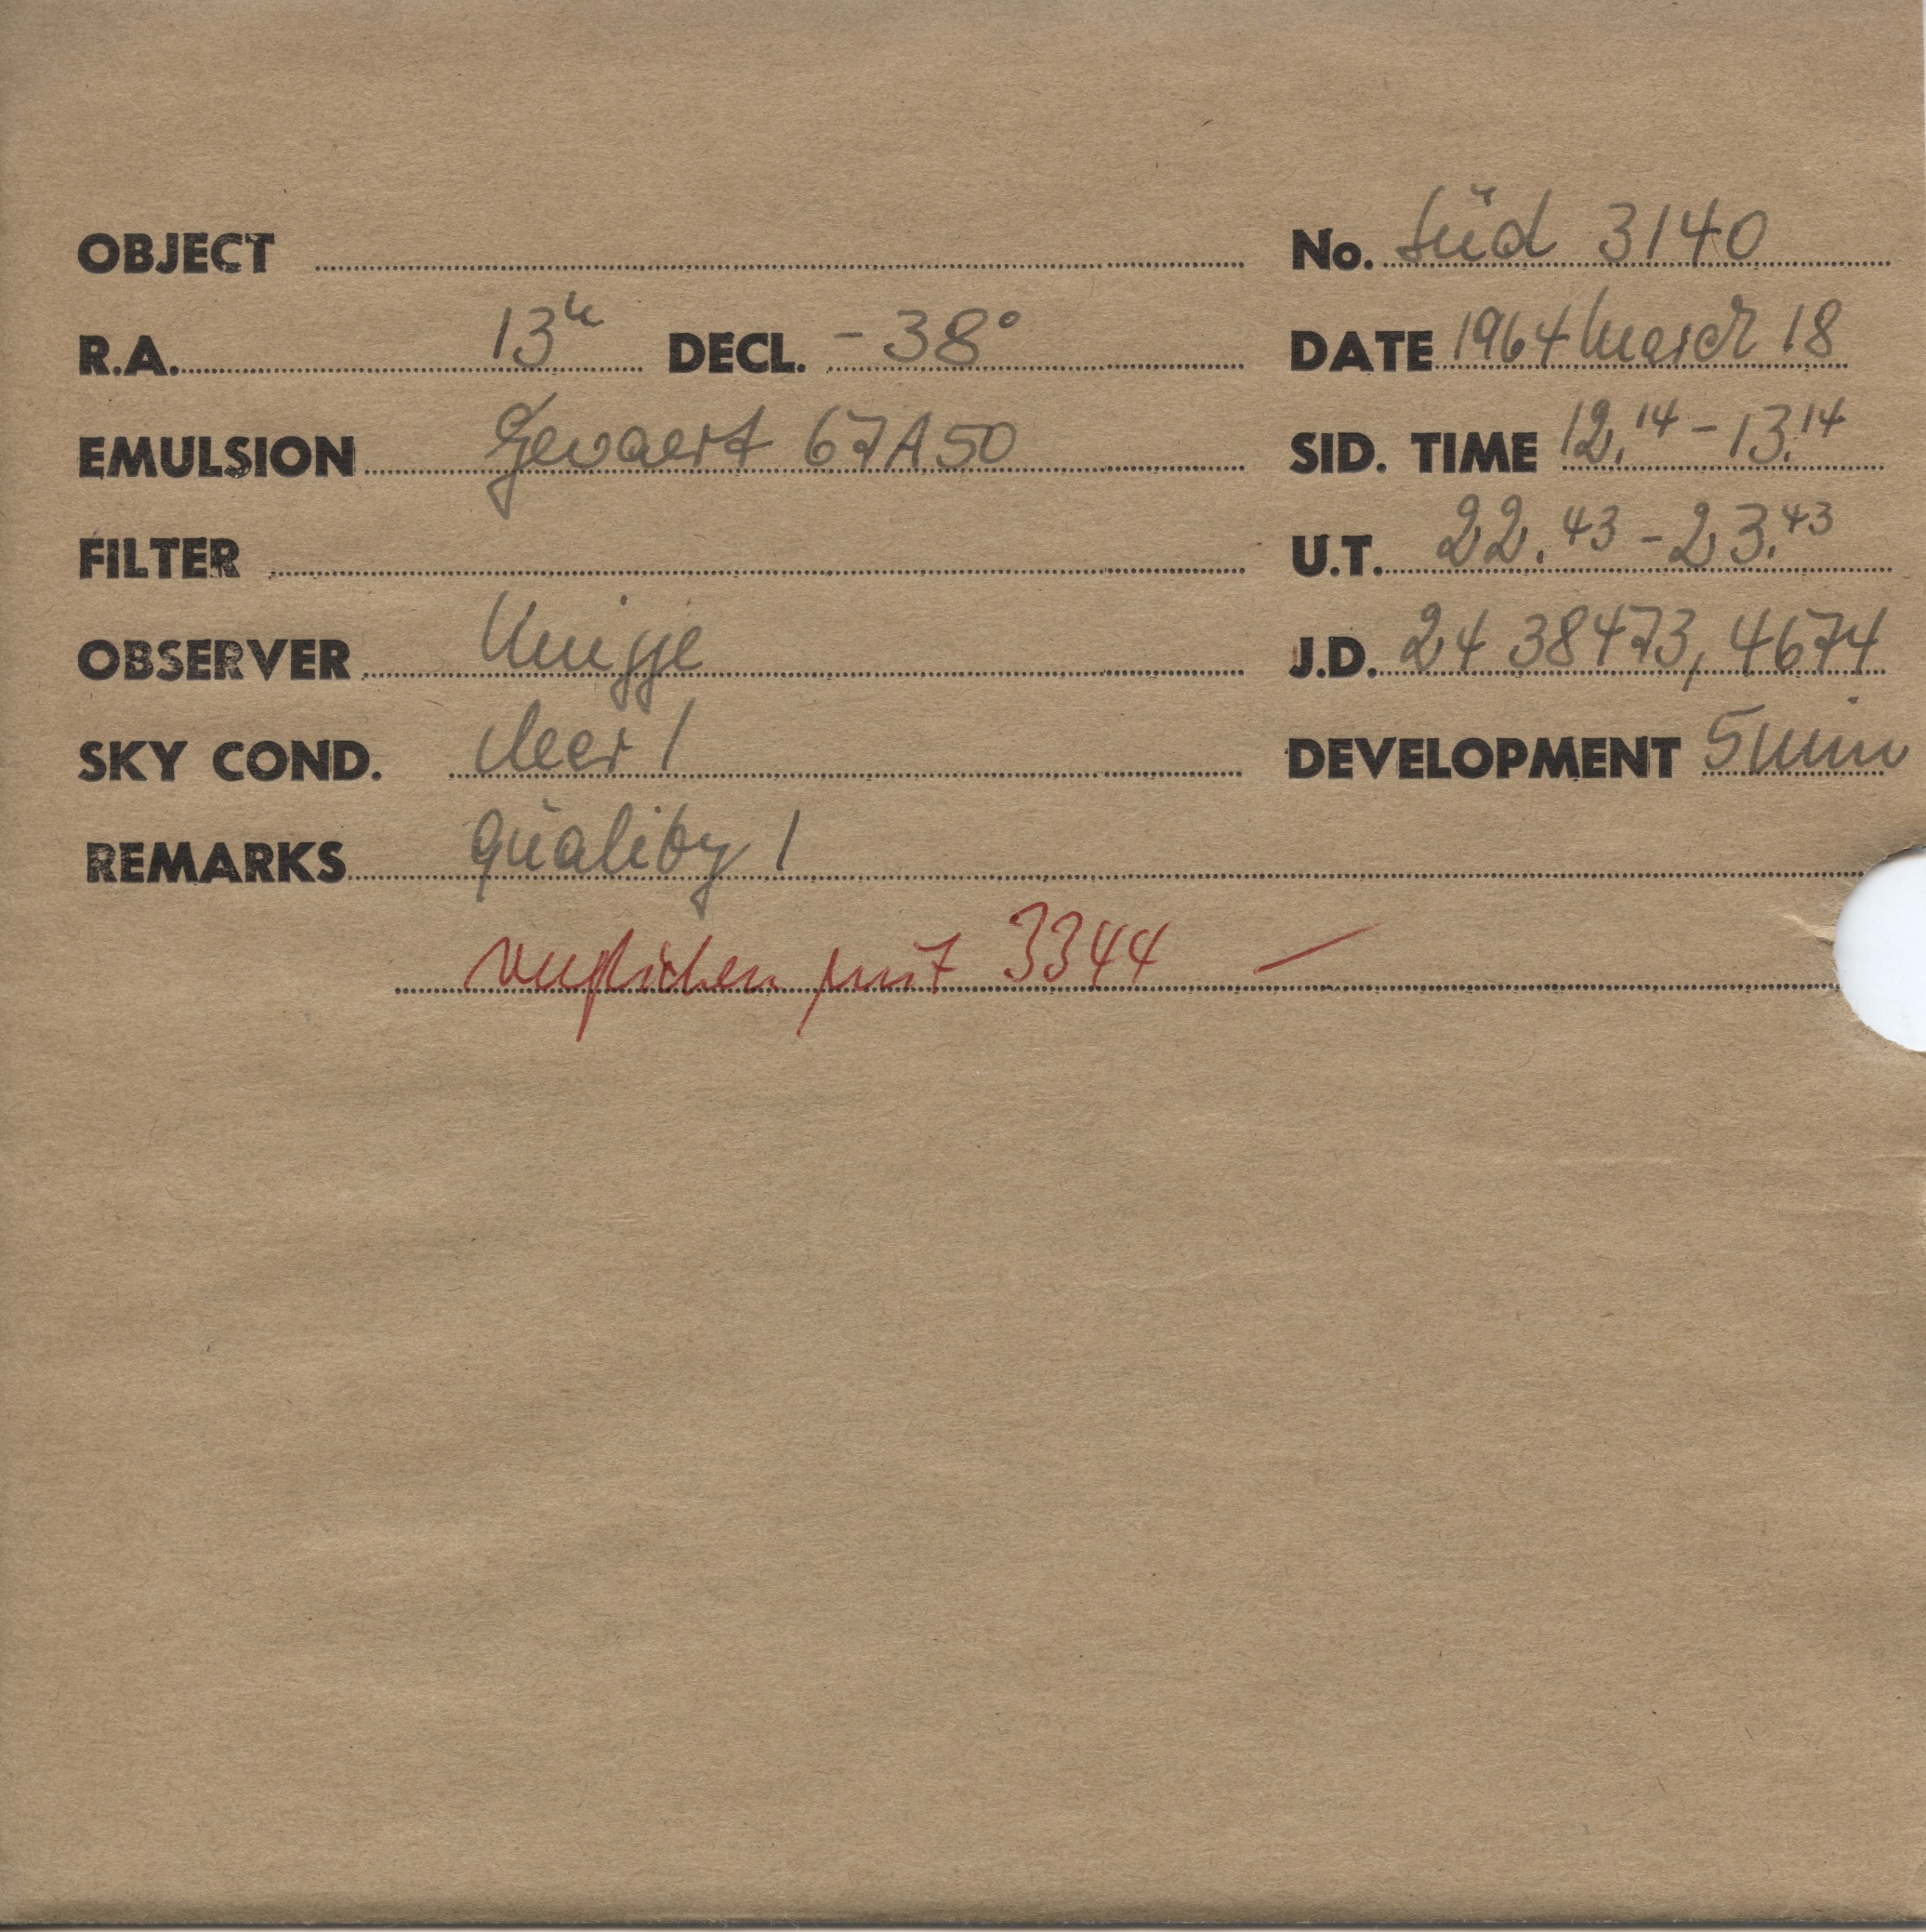 OBJECT No. Süd 3140
R.A. 13h DECL. -38° DATE 1964 March 18
EMULSION Gevaert 67A50 SID. TIME 12.14 - 13.14
FILTER U.T. 22.43 - 23.43
OBSERVER J.D. 24 38473,4674
SKY COND. clear 1 DEVELOPMENT 5 min
REMARKS quality 1
verglichen mit 3344 —